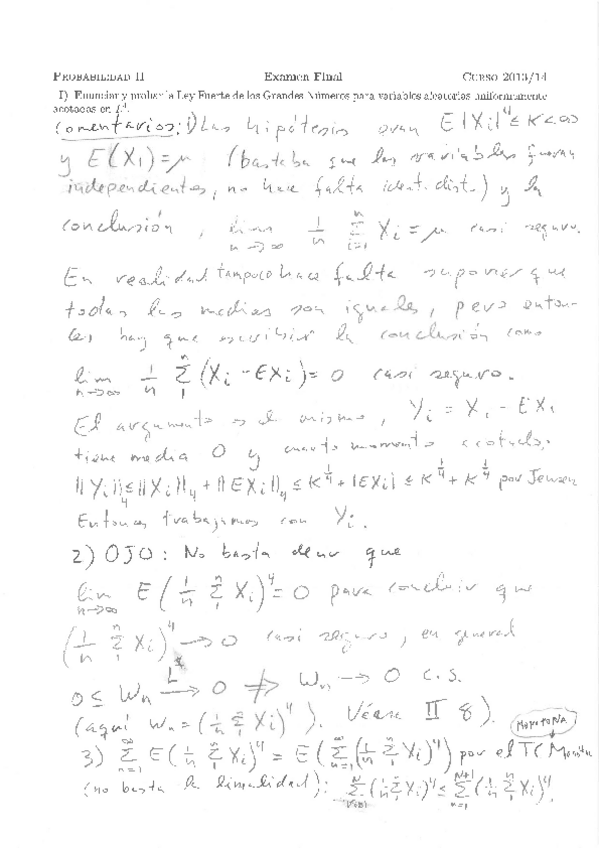 PROBABILIDAD II Examen Final CURSO 2013/14
I) Enunciar y probar la Ley Fuerte de los Grandes Números para variables aleatorias uniformemente
acotadas en L⁴.
Comentarios: 1) Las hipótesis eran E|Xi|⁴ ≤ K < ∞
y E(X1) = μ (bastaba que las variables fueran
independientes, no hace falta ident. dist.) y la
conclusión, lim n→∞ 1/n Σ_{i=1}^n Xi = μ casi seguro.
En realidad tampoco hace falta suponer que
todas las medias son iguales, pero enton-
ces hay que escribir la conclusión como
lim n→∞ 1/n Σ_1^n (Xi - EXi) = 0 casi seguro.
El argumento es el mismo, Yi = Xi - EXi
tiene media 0 y cuarto momento acotado.
||Yi||_4 ≤ ||Xi||_4 + ||EXi||_4 ≤ K^{1/4} + |EXi| ≤ K^{1/4} + K^{1/4} por Jensen
Entonces trabajamos con Yi.
2) OJO: No basta decir que
lim n→∞ E(1/n Σ_1^n Xi)⁴ = 0 para concluir que
(1/n Σ_1^n Xi)⁴ → 0 casi seguro, en general
0 ≤ Wn → 0 ⇏ Wn → 0 c.s.
(aquí Wn = (1/n Σ_1^n Xi)⁴). Véase II 8).
MONÓTONA
3) Σ_{n=1}^∞ E(1/n Σ_1^n Xi)⁴ = E(Σ_{n=1}^∞ (1/n Σ_1^n Xi)⁴) por el TC
(no basta la linealidad): Σ (1/n Σ_1^n Xi)⁴ ≤ Σ_{n=1}^{N+1} (1/n Σ_1^n Xi)⁴.